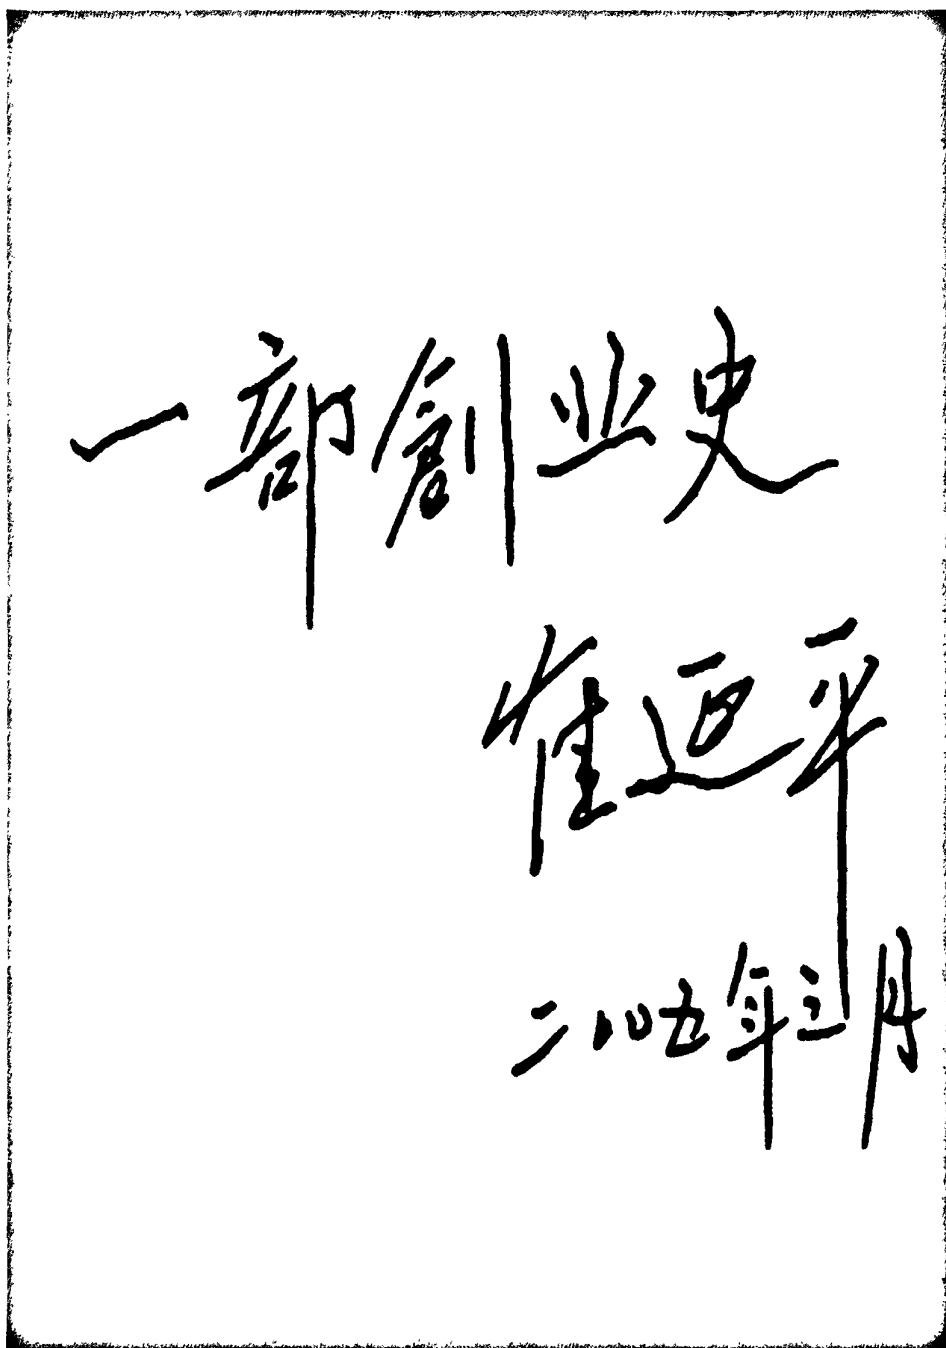 一部創业史
崔延平
二〇〇五年三月